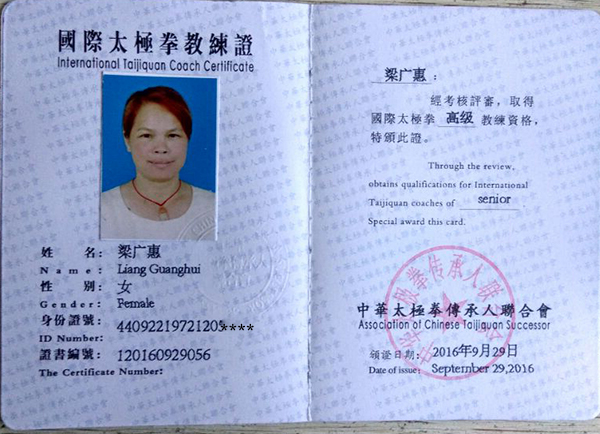 國際太極拳教練證
International Taijiquan Coach Certificate
姓 名: 梁广惠
Name: Liang Guanghui
性 別: 女
Gender: Female
身份證號: 44092219721205****
ID Number:
證書編號: 120160929056
The Certificate Number:
梁广惠:
經考核評審,取得
國際太極拳 高级 教練資格,
特頒此證。
Through the review,
obtains qualifications for International
Taijiquan coaches of senior .
Special award this card.
中華太極拳傳承人聯合會
Association of Chinese Taijiquan Successor
頒證日期: 2016年9月29日
Date of issue: September 29,2016